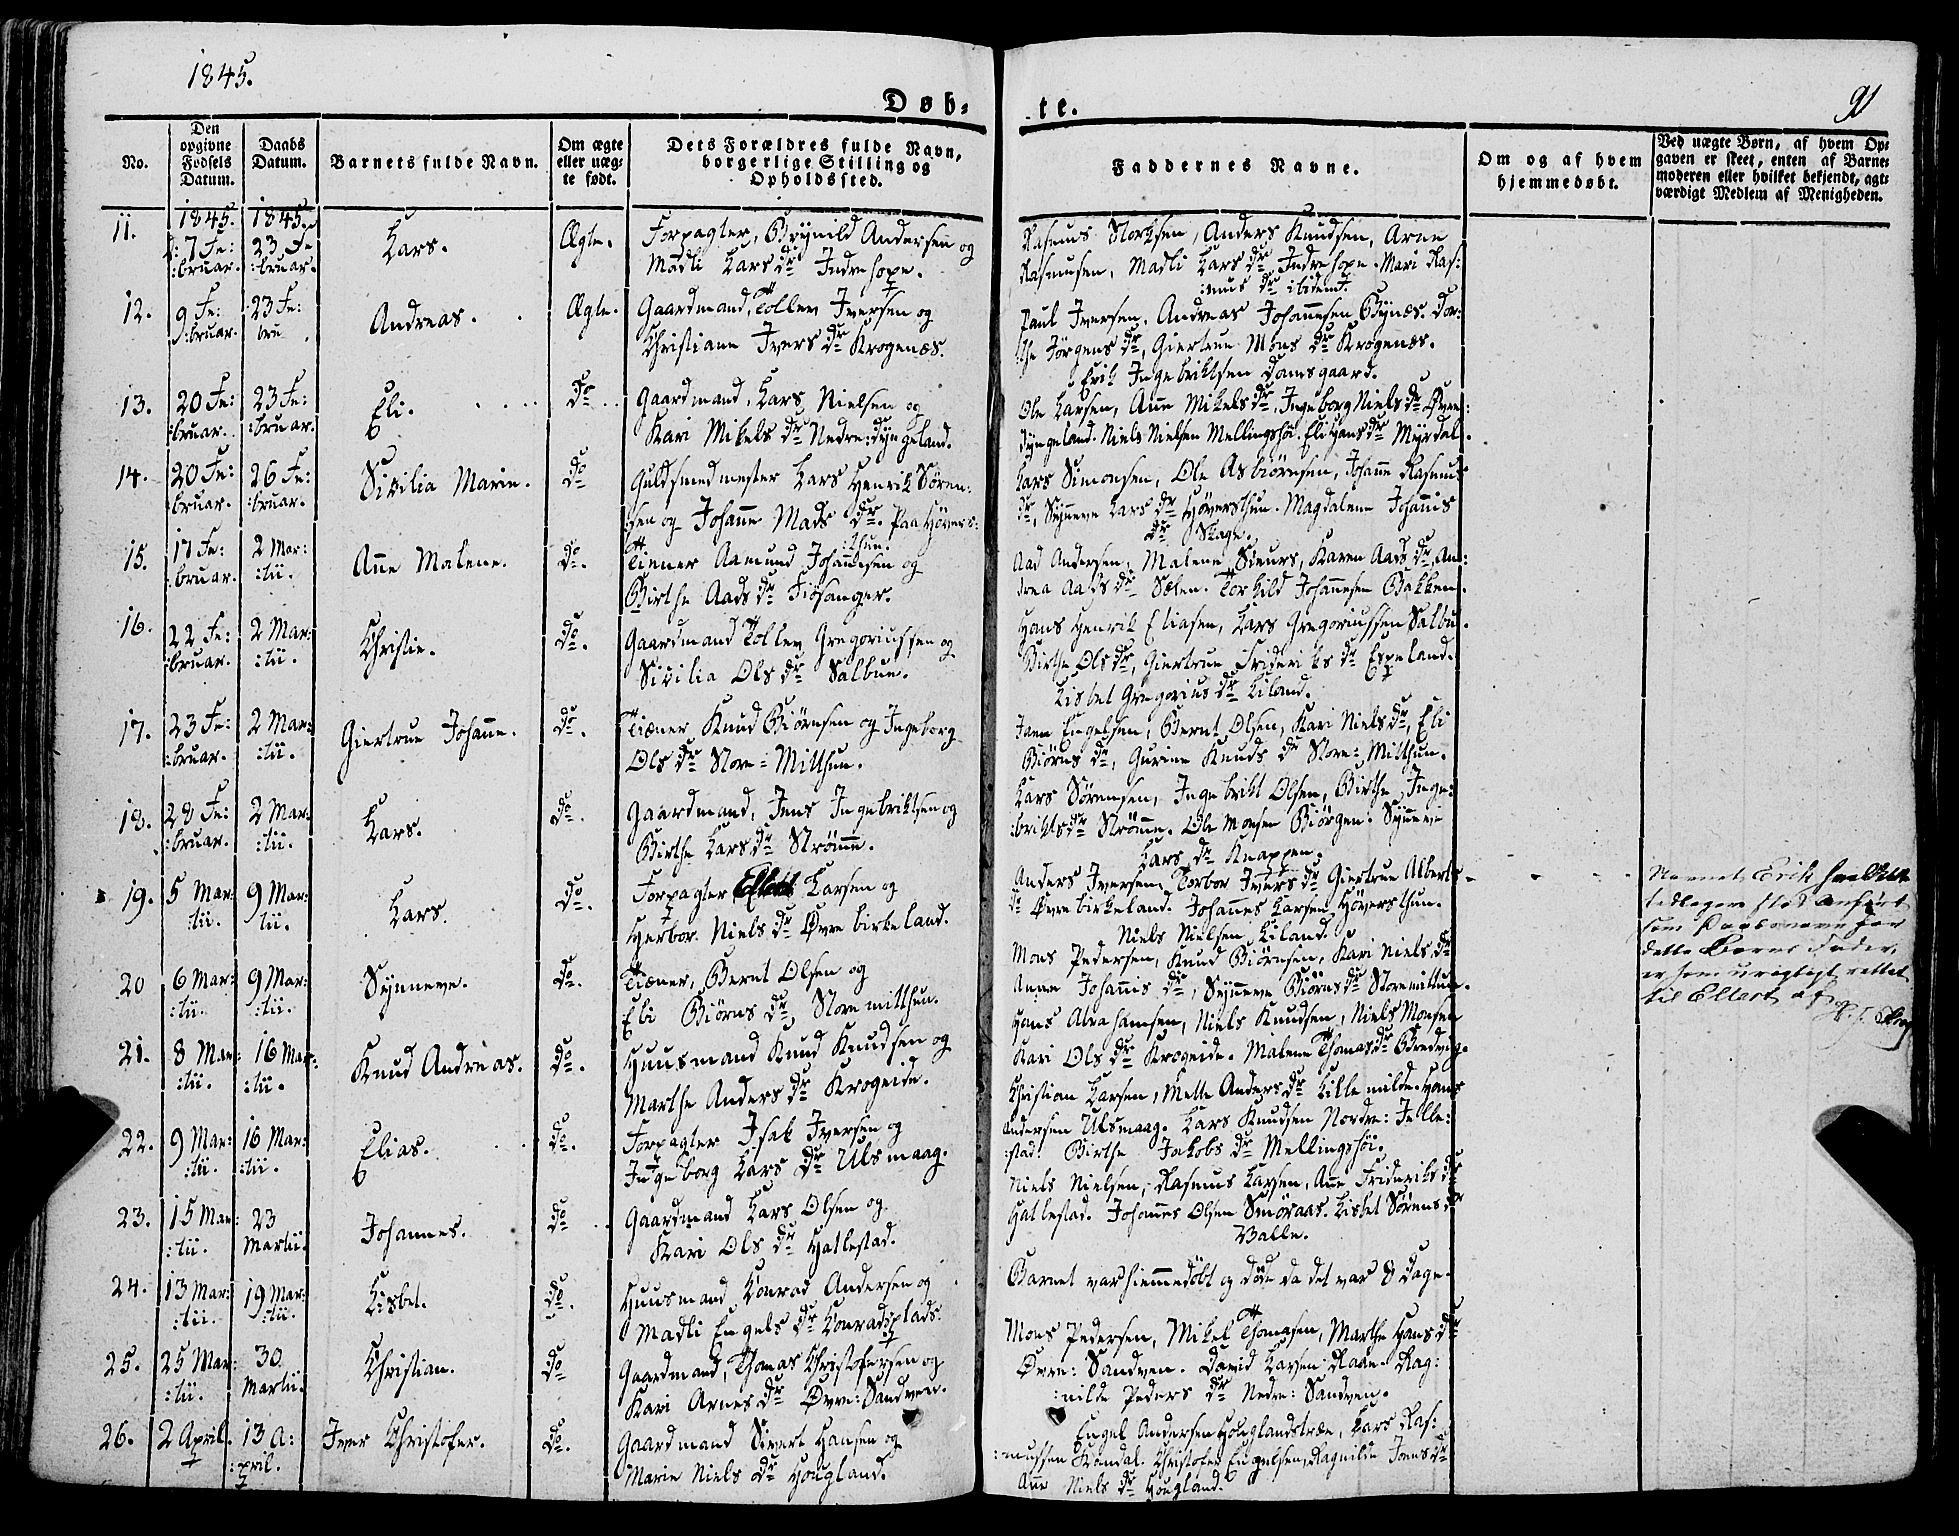 1845.
Døb-
te.
91
No.
Den opgivne Fødsels Datum.
Daabs Datum.
Barnets fulde Navn.
Om ægte eller uægte født.
Dets Forældres fulde Navn, borgerlige Stilling og Opholdssted.
Faddernes Navne.
Om og af hvem hjemmedøbt.
Ved uægte Børn, af hvem Opgaven er skeet, enten af Barnemoderen eller hvilket bekjendt, agtværdigt Medlem af Menigheden.
11. 1845. 7 Fe: :bruar. 1845. 23 Fe :bruar. Lars. Ægte. Forpagter, Brynild Andersen og
Madli Lars dr Indrehope.
Rasmus Størksen, Anders Knudsen, Arne
Rasmusen, Madli Lars dr Indrehope. Mari Ras:
:mus dr ibidemt.
12. 9 Fe: :bruar. 23 Fe: bru Andreas. Ægte. Gaardmand, Tollev Iversen og
Christiane Ivers dr Krogenæs.
Paul Iversen, Andreas Johannesen Bynæs. Dor:
:the Jørgens dr, Giertrue Mons dr Krogenæs.
Erik Ingebriktsen Damsgaard.
13. 20 Fe: :bruar. 23 Fe: :bruar. Eli. Do Gaardmand, Lars Nielsen og
Kari Mikels dr Nedre: dyngeland.
Ole Larsen, Anne Mikels dr, Ingeborg Niels dr Øvre
dyngeland. Niels Nielsen Mellingshøi. Eli Hans dr Myrdal.
14. 20 Fe: bruar. 26 Fe: :bruar. Sivilia Marie. Do Guldsmedmester Lars Henrik Søren:
:sen og Johanne Mads dr. paa Høvers:
:thun.
Lars Simonsen, Ole Asbiørnsen, Johanne Rasmus
dr, Synneve Lars dr Høversthun. Magdalene Johannis
dr Skage.
15. 17 Fe: bruar. 2 Mar: :tii. Anne Malene. Do. Tiener Aamund Johannesen og
Birthe Aads dr Fiøsanger.
Aad Andersen, Malene Sieurs, Karen Aads dr, An:
drea Aads dr Sælen. Torkild Johannesen Bakken.
16. 22 Fe: bruar. 2 Mar: :tii. Christie. Do. Gaardmand Tollev Gregoriussen og
Sivilia Ols dr Salbue.
Hans Henrik Eliasen, Lars Gregoriussen Salbu.
Birthe Ols dr, Giertrue Frideriks dr Espeland.
Lisbet Gregorius dr Liland.
17. 23 Fe: :bruar. 2 Mar: :tii. Giertrue Johanne. Do. Tiæner Knud Biørnsen og Ingeborg
Ols dr Store = Milthun.
Jann Engelsen, Bernt Olsen, Kari Niels dr, Eli
Biørns dr, Gurine Knuds dr Store: Milthun.
18. 28 Fe: :bruar. 2 Mar: :tii. Lars. Do. Gaardmand, Jens Ingebriktsen og
Birthe Lars dr Strømme.
Lars Sørensen, Ingebrikt Olsen, Birthe Inge:
:brikts dr Strømme. Ole Monsen Biørgen. Synneve
Lars dr Knappen.
19. 5 Mar: tii. 9 Mar: tii. Lars. Do. Forpagter Ellert Larsen og
Herbor Niels dr Øvre birkeland.
Anders Iversen, Torbor Ivers dr Giertrue Alberts
dr Øvre birkeland. Johannes Larsen Høversthun.
Niels Nielsen Liland.
Navnet Erik
tidligere stod anført
som Daabsnavn for
dette Barns Fader,
er som urigtigt rettet
til Ellert af
20 6 Mar: :tii. 9 Mar: :tii. Synneve. Do. Tiæner, Bernt Olsen og
Eli Biørns dr, Store milthun.
Mons Pedersen, Knud Biørnsen, Kari Niels dr
Anne Johannis dr, Synneve Biørns dr Store milthun.
21. 8 Mar: :tii. 16 Mar: :tii. Knud Andreas. Do. Huusmand Knud Knudsen og
Marthe Anders dr Krogeide.
Hans Abrahamsen, Niels Knudsen, Niels Monsen
Kari Ols dr Krogeide. Malene Thomas dr Bredvig.
22. 9 Mar: :tii. 16 Mar: :tii. Elias. Do. Forpagter Isak Iversen og
Ingeborg Lars dr Ulsmaag.
Christian Larsen, Mette Anders dr Lille milde. Hans
Andersen Ulsmaag. Lars Knudsen Nordre: Jelle:
:stad. Birthe Jakobs dr Mellingshøi.
23. 15 Mar: :tii. 23 Martii. Johannes. Do Gaardmand Lars Olsen og
Kari Ols dr Hatlestad.
Niels Nielsen, Rasmus Larsen, Anne Frideriks dr
Hatlestad. Johannes Olsen Smøraas. Lisbet Sørens dr
Valle.
24. 13 Mar: :tii. 19 Mar: :tii. Lisbet. Do. Huusmand Konrad Andersen og
Madli Engels dr Konradsplads.
Barnet var hiemmedøbt og døde da det var 8 Dage.
25. 25 Mar: :tii. 30 Martii. Christian. Do Gaardmand, Thomas Christofersen og
Kari Arnes dr Øvre: Sandven.
Mons Pedersen, Mikel Thomasen, Marthe Hans dr
Øvre: Sandven. David Larsen Raae. Rag:
:nilde Peders dr Nedre: Sandven.
26. 2 April. 13 A: :pril. Iver Christofer. Do. Gaardmand Sivert Hansen og
Marie Niels dr Hougland.
Engel Andersen Houglandstræe, Lars Ras:
:mussen Kandal. Christofer Engelsen, Ragnilde Joens dr
Anne Niels dr Hougland.